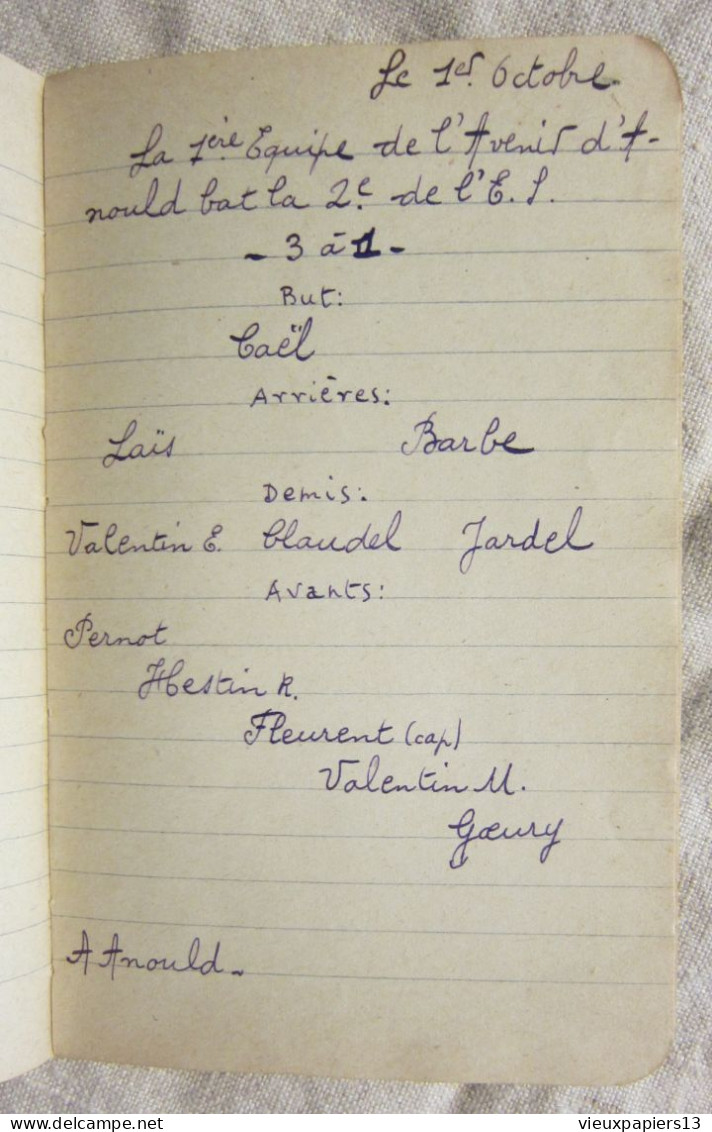 Le 1er Octobre.
La 1ère Equipe de l'Avenir d'A-
nould bat la 2e de l'E.S.
- 3 à 1 -
But:
Caël
Arrières:
Laïs Barbe
Demis:
Valentin E. Claudel Jardel
Avants:
Pernot
Hestin R.
Fleurent (cap)
Valentin M.
Gœury
A Anould -
vieuxpapiers13